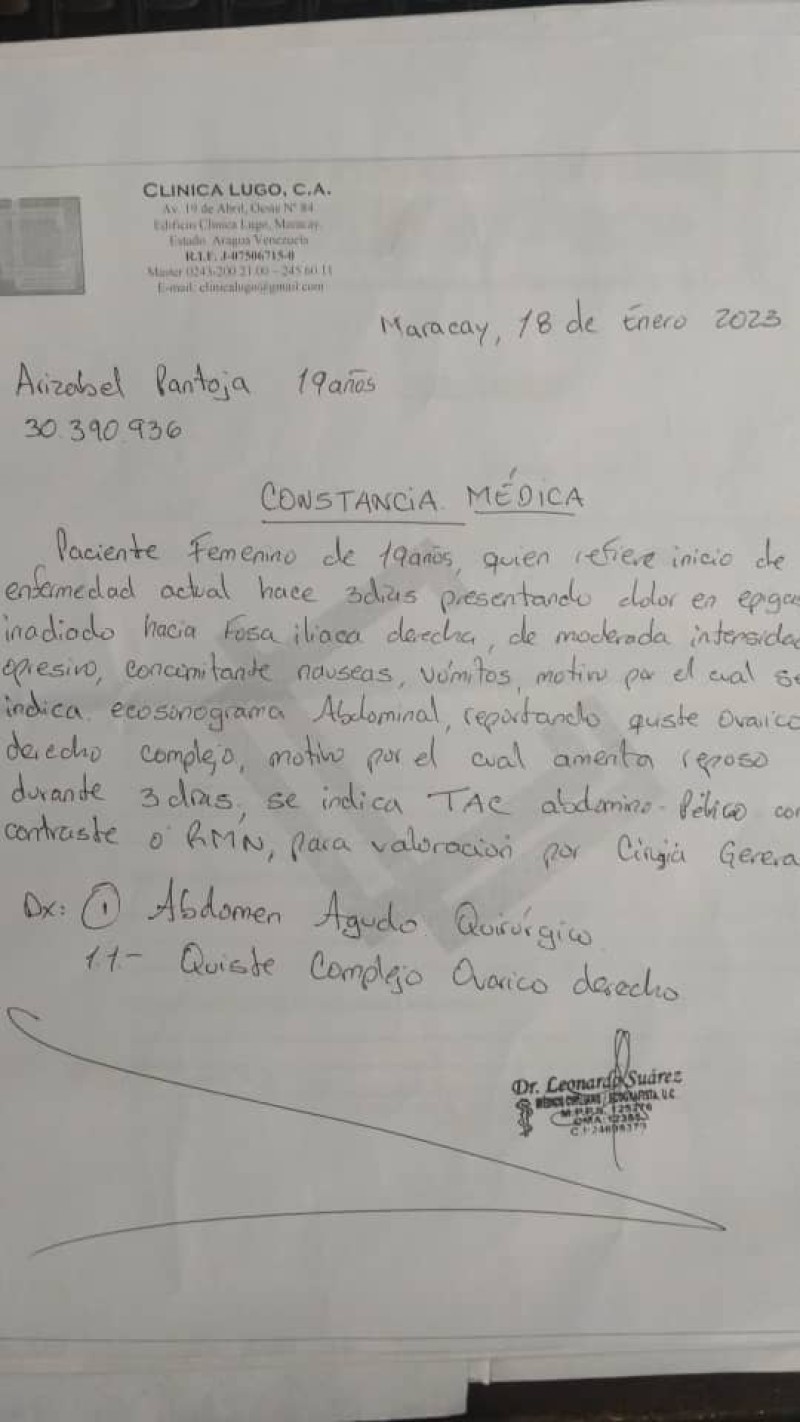 CLINICA LUGO, C.A.
Av. 19 de Abril, Oeste Nº 84
Edificio Clinica Lugo, Maracay,
Estado Aragua Venezuela
R.I.F. J-07506715-0
Master 0243-200 21 00 - 245 60 11
E-mail: clinicalugo@gmail.com
Maracay, 18 de Enero 2023
Arizabel Pantoja 19 años
30.390.936
CONSTANCIA MÉDICA
Paciente Femenino de 19 años, quien refiere inicio de
enfermedad actual hace 3 dias presentando dolor en epigas
irradiado hacia Fosa iliaca derecha, de moderada intensida
opresivo, concomitante nauseas, vómitos, motivo por el cual se
indica ecosonograma Abdominal, reportando quiste Ovarico
derecho complejo, motivo por el cual amerita reposo
durante 3 dias, se indica TAC abdomino-Pélvico con
contraste o RMN, para valoración por Cirugia Genera
Dx: 1 Abdomen Agudo Quirúrgico
1.1.- Quiste Complejo Ovarico derecho
Dr. Leonardo Suárez
MÉDICO CIRUJANO / ECOGRAFISTA, U.C.
M.P.P.S.